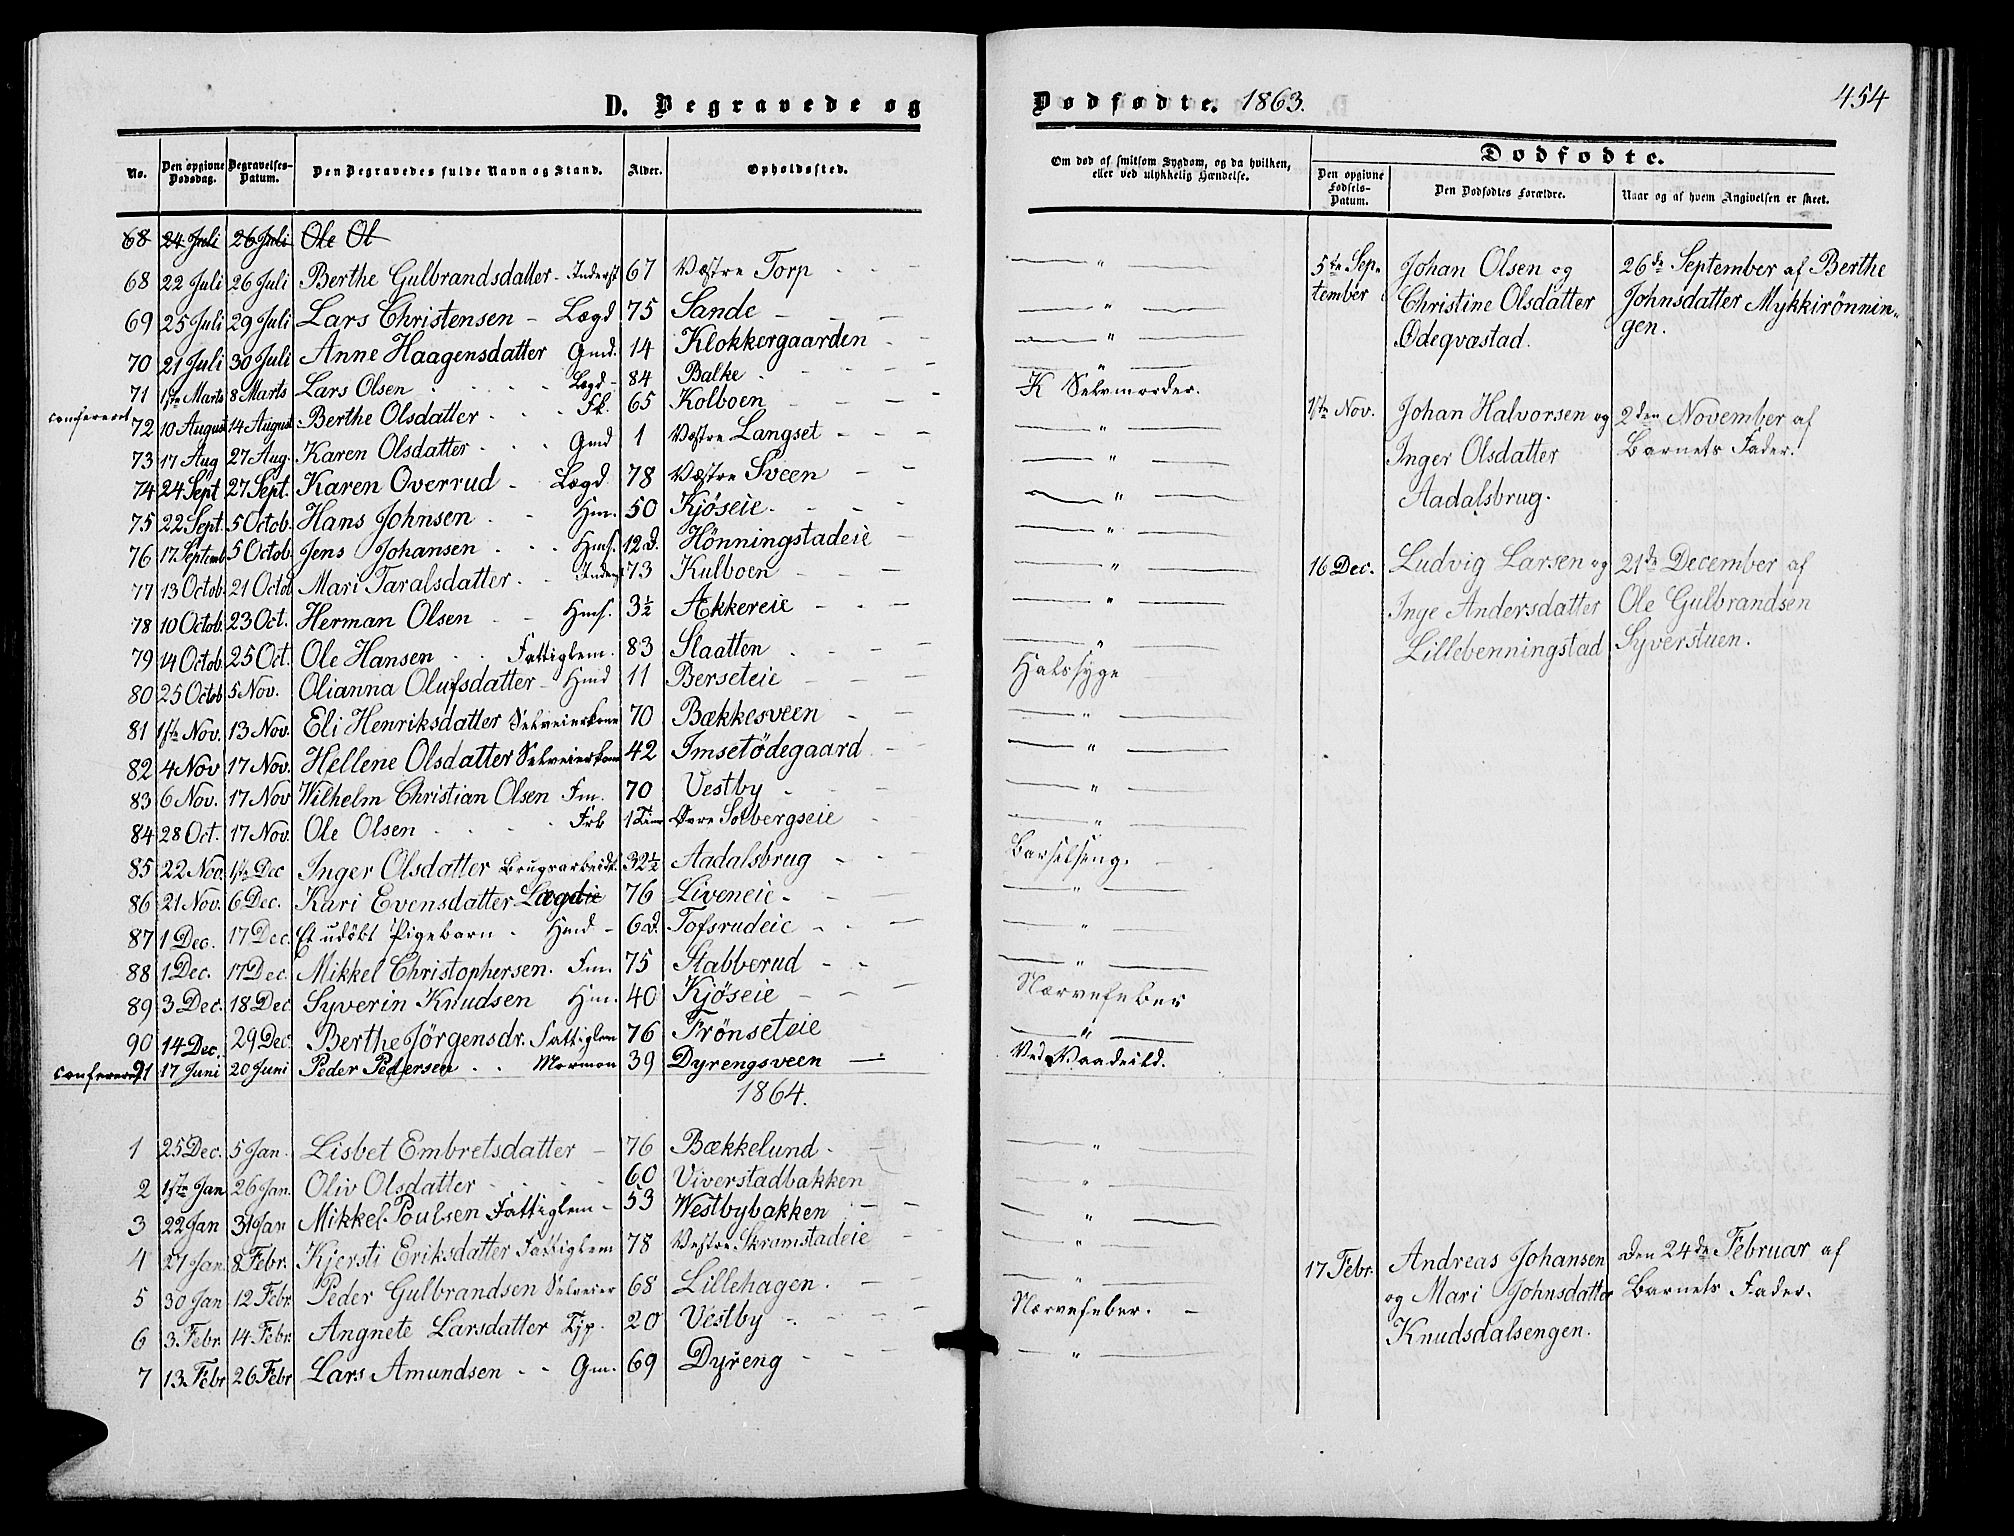 D. Begravede og
No. Den opgivne Dødsdag. Begravelses-Datum. Den Begravedes fulde Navn og Stand. Alder. Opholdssted.
68 24 Juli 26 Juli Ole Ol
68 22 Juli 26 Juli Berthe Gulbrandsdatter - Inderst 67 Væstre Torp
69 25 Juli 29 Juli Lars Christensen - Lægd 75 Sande
70 21 Juli 30 Juli Anne Haagensdatter Gmd. 14 Klokkergaarden
71 1ste Marts 8 Marts Lars Olsen Lægd - 84 Balke
confereret 72 10 August 14 August Berthe Olsdatter Fk. 65 Kolboen
73 17 Aug 27 Aug. Karen Olsdatter Gmd 1 Væstre Langset
74 24 Sept 27 Sept. Karen Overrud - Lægd 78 Væstre Sveen
75 22 Sept. 5 Octob. Hans Johnsen Hm. 50 Kjøseie
76 17 Septemb 5 Octob. Jens Johansen Hms. 12 D. Hönningstadeie
77 13 Octob. 21 Octob Mari Taralsdatter Inderst 73 Kulboen
78 10 Octob. 23 Oct. Herman Olsen Hms. 3½ Akkereie
79 14 Octob. 25 Oct. Ole Hansen Fattiglem. 83 Slaatten
80 25 Octob 5 Nov. Olianna Olufsdatter - Hmd 11 Berseteie
81 1ste Nov. 13 Nov. Eli Henriksdatter Selveierkone 70 Bækkesveen
82 4 Nov 17 Nov. Hellene Olsdatter Selveierkone 42 Imsetödegaard
83 6 Nov. 17 Nov Wilhelm Christian Olsen Fm. 70 Vestby
84 28 Oct. 17 Nov. Ole Olsen Frk 1 Time Øvre Solbergseie
85 22 Nov. 1ste Dec Inger Olsdatter Brugsarbeidk. 32½ Aadalsbrug
86 21 Nov. 6 Dec. Kari Evensdatter Lægdie 76 Liveneie
87 1 Dec. 17 Dec. Et udøbt Pigebarn Hmd - 6 D. Tofsrudeie
88 1 Dec. 17 Dec. Mikkel Christophersen. Fm. 75 Stabberud
89 3 Dec. 18 Dec Syverin Knudsen Hm. 40 Kjøseie
90 14 Dec. 29 Dec. Berthe Jörgensdr. Fattiglem 76 Frönseteie
confereret 91 17 Juni 20 Juni Peder Pedersen Mormon 39 Dyrengsveen
1864.
1 25 Dec. 5 Jan. Lisbet Embretsdatter 76 Bækkelund
2 1ste Jan 26 Jan. Oliv Olsdatter 60 Viverstadbakken
3 22 Jan 31 Jan Mikkel Poulsen Fattiglem - 53 Westbybakken
4 27 Jan 8 Febr. Kjersti Eriksdatter Fattiglem 78 Vestre Skramstadeie
5 30 Jan 12 Febr. Peder Gulbrandsen Selveier 68 Lillehagen.
6 3 Febr. 14 Febr. Angnete Larsdatter Tjp. 20 Vestby
7 13 Febr 26 Febr Lars Amundsen Gm. 69 Dyreng
Dødfødte. 1863.
454
Om død af smitsom Sygdom, og da hvilken,
eller ved ulykkelig Hændelse.
Dødfødte.
Den opgivne Fødsels-Datum. Den Dødfødtes Forældre. Naar og af hvem Angivelsen er skeet.
K Selvmorder.
Halssyge
Barselseng.
Nervefeber
Ved Vaadeild.
Nervefeber.
5te Sep- Johan Olsen og 26de September af Berthe
tember Christine Olsdatter Johnsdatter Mykkirönnin-
Ødeqvastad. gen.
1ste Nov. Johan Halvorsen og 2den November af
Inger Olsdatter Barnets Fader.
Aadalsbrug.
16 Dec. Ludvig Larsen og 21de December af
Inge Andersdatter Ole Gulbrandsen
Lillebenningstad Syverstuen.
17 Febr. Andreas Johansen Den 24de Februar af
og Mari Johnsdatter Barnets Fader.
Knudsdalsengen.